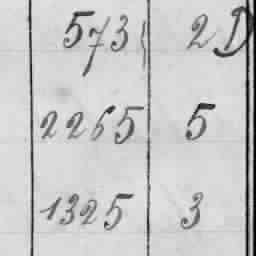 573 2D
2265 5
1325 3